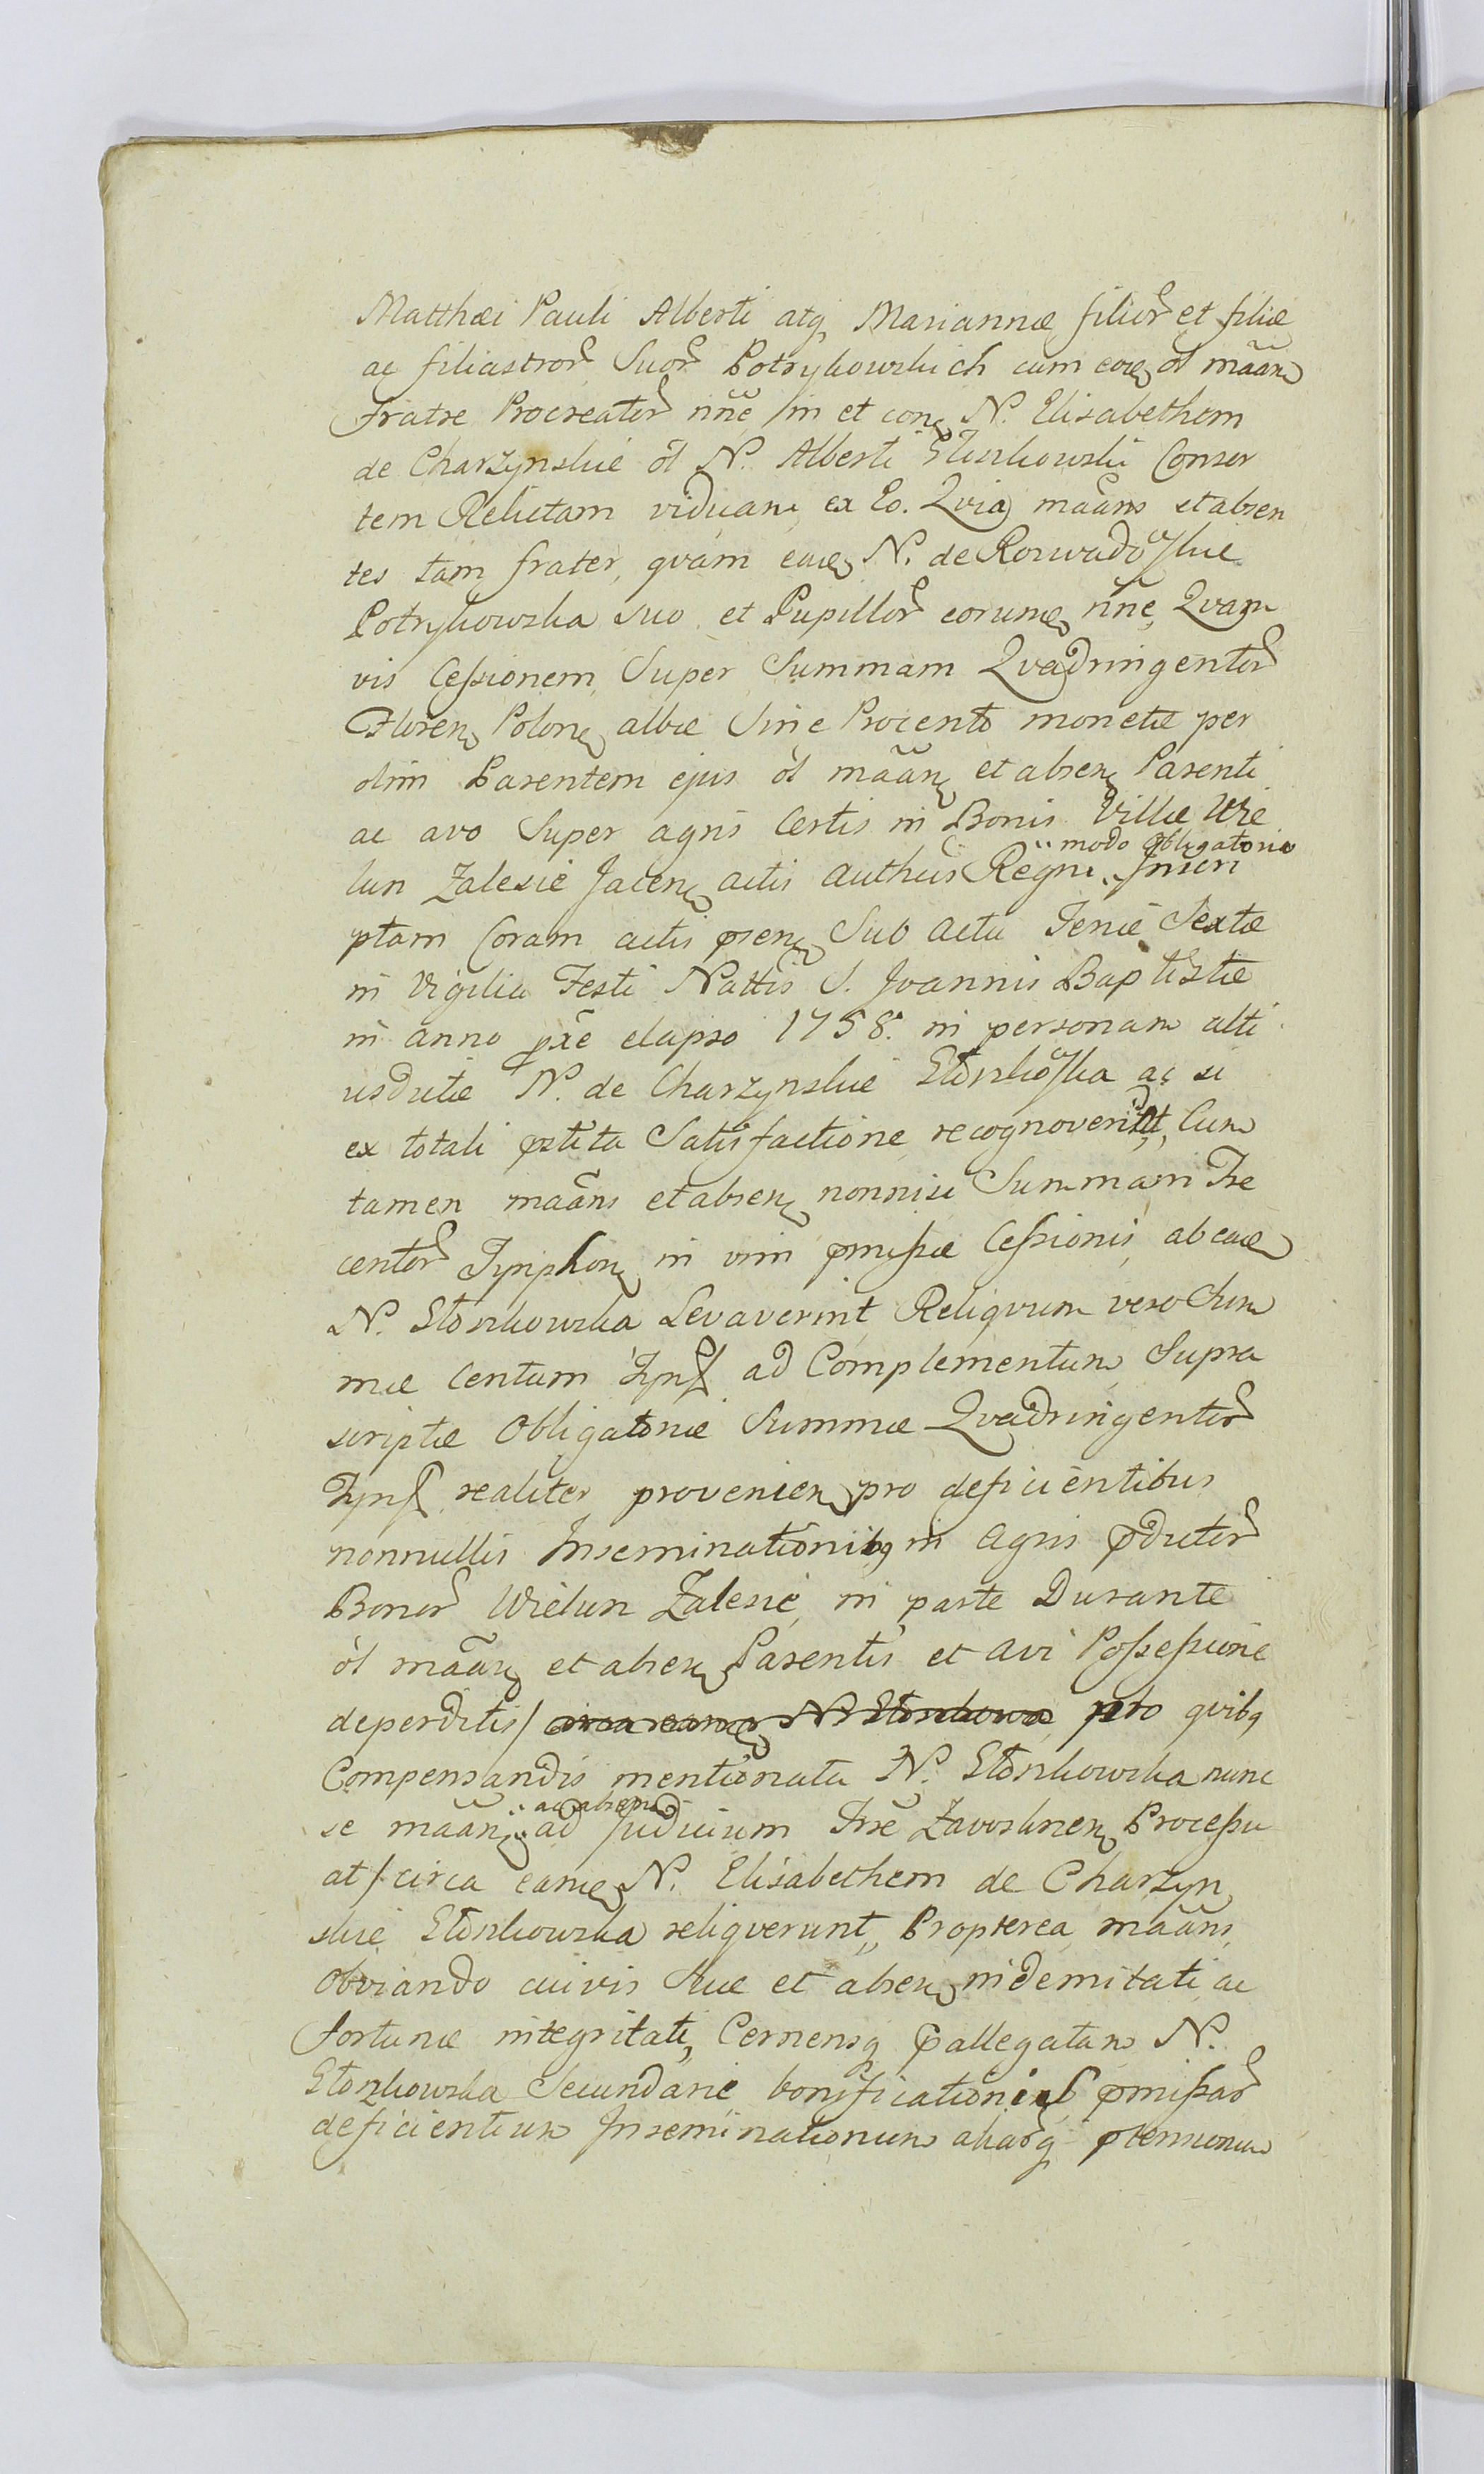 Matthæi Pauli Alberti atq Mariannæ filior et filiæ
ac filiastror Suor Potrykowskich cum eaeq ol mãan
fratre Procreator nñe in et conq N. Elisabethem
de Charzynskie ol N. Alberti Stonkowski Consor
tem Relictam viduam, ex Eo. Qvia mãans et absen
tes tam frater, qvam eaeq N. de Rozwadoskie
Potrykowska suo et Pupillor eorumq nñe, Qvam
vis Cessionem Super Summam Qvadringentor
Floren Polon albæ Sine Procento monetæ per
olim Parentem ejus ol mãan et absen Parenti
ac avo Super agris Certis in Bonis Villæ Wie
modo obligatorio
lun Zalesie Jacen actis authcis Regni Inscri
ptam Coram actis præsen Sub actu Feriæ Sextæ
in Vigilia Festi Nattis S. Joannis Baptistæ
in anno pxe elapso 1758. in personam alti
usdictæ N. de Charzynskie Stonkoska ac si
ex totali pstita Satisfactione recognoverint, Cum
tamen mãans et absen nonnisi Summam Tre
centor Tynphon in vim pmissæ Cessionis, ab eaeq
N. Stonkowska Levaverint Reliqvum vero Sum
mæ Centum Tynf ad Complementum Supra
scriptæ Obligatoriæ Summæ Qvadringentor
Tynf realiter provenien pro deficientibus
nonnullis Inseminationibq in Agris pdictor
Bonor Wielun Zalesie in parte Durante
ol mãan et absen Parentis et avi Possessione
deperditis/ pro qvibq
Compensandis mentionata N. Stonkowska nunc
ac absen
se mãan ad Judicium Trre Zavoskrzen Processu
at/ circa eamq N. Elisabethem de Charzyn
skie Stonkowska reliqverunt, Propterea mãans,
Obviando cuivis Suæ et absen indemitati ac
fortunæ integritati, Cernensq pallegatam N.
Stonkowska Secundariæ bonificationis pmissar
deficientium Inseminationum aliarq ptensionum